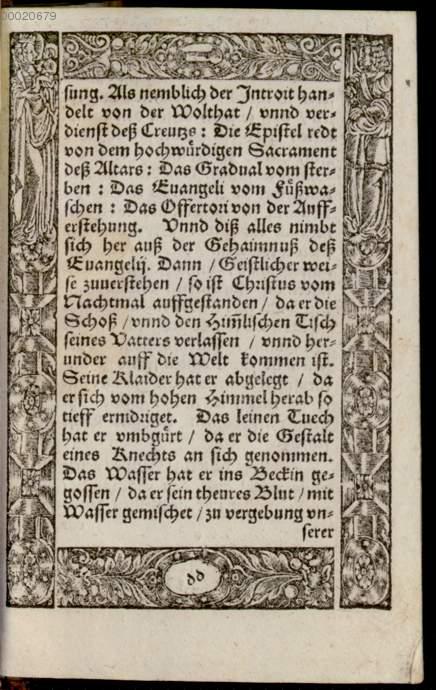 00020679
sung. Als nemblich der Introit han⸗
delt von der Wolthat / vnnd ver⸗
dienst deß Creutzs : Die Epistel redt
von dem hochwuͤrdigen Sacrament
deß Altars : Das Gradual vom ster⸗
ben : Das Euangeli vom Fuͤßwa⸗
schen : Das Offertori von der Auff⸗
erstehung. Vnnd diß alles nimbt
sich her auß der Gehaimnuß deß
Euangelij. Dann / Geistlicher wei⸗
se zuuerstehen / so ist Christus vom
Nachtmal auffgestanden / da er die
Schoß / vnnd den Him̃lischen Tisch
seines Vatters verlassen / vnnd her⸗
under auff die Welt kommen ist.
Seine Klaider hat er abgelegt / da
er sich vom hohen Himmel herab so
tieff ernidriget. Das leinen Tuech
hat er vmbguͤrt / da er die Gestalt
eines Knechts an sich genommen.
Das Wasser hat er ins Beckin ge⸗
gossen / da er sein theures Blut / mit
Wasser gemischet / zu vergebung vn⸗
serer
dd